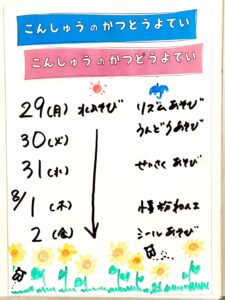 こんしゅうのかつどうよてい
こんしゅうのかつどうよてい
29(月) 水あそび リズムあそび
30(火) うんどうあそび
31(水) せいさくあそび
8/1(木)
2(金) シールあそび